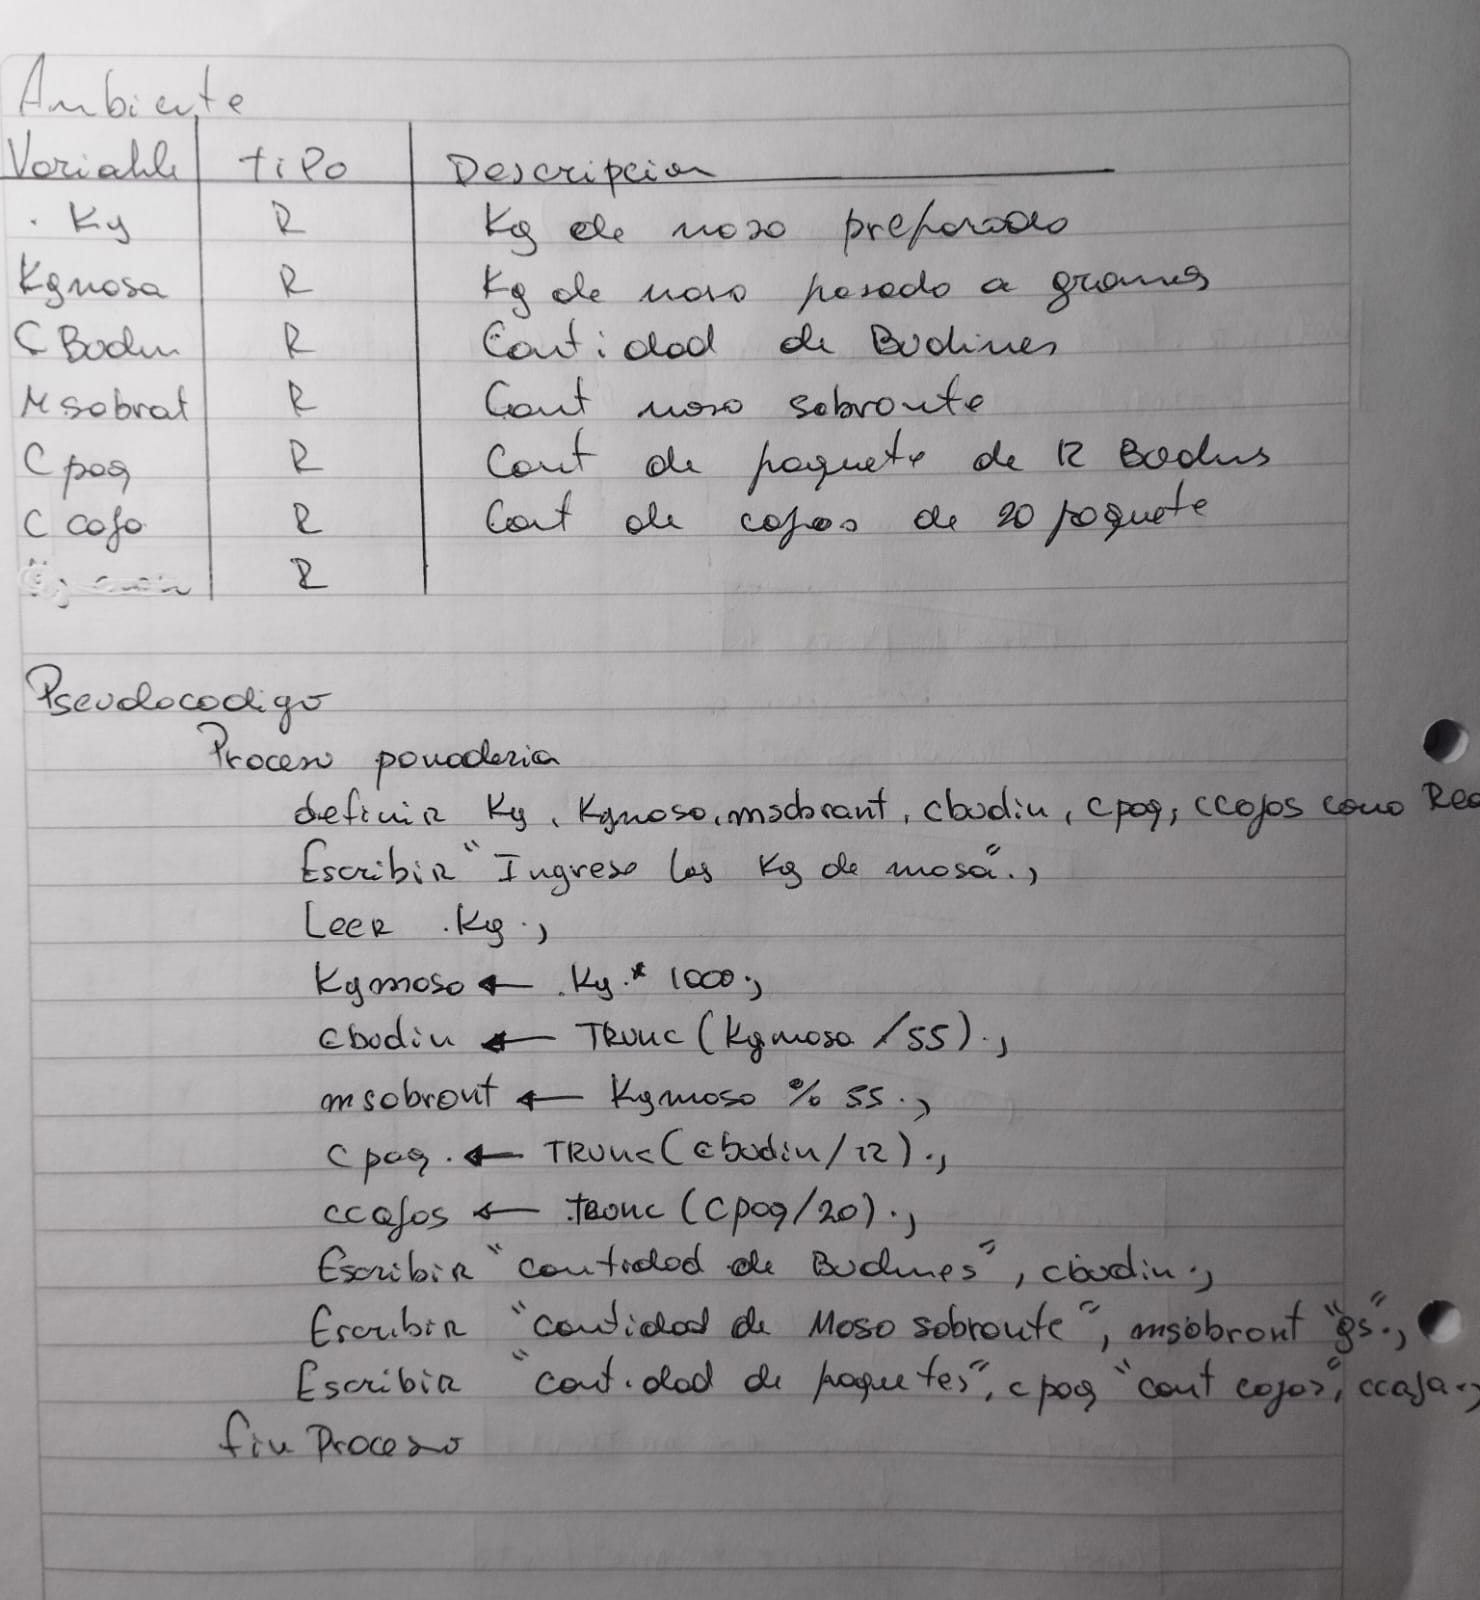 Ambiente
Variable tipo Descripcion
. Kg R Kg de masa preparado
Kgmasa R Kg de masa pasado a gramos
C Bodin R Cantidad de Budines
M sobrat R Cant masa sobrante
C paq R Cant de paquete de 12 Bodins
C cajo R Cant de cajas de 20 paquete
R
Pseudocodigo
Proceso panaderia
definir Kg, Kgmasa, msobrant, cbudin, cpaq, ccajas como Rea
Escribir "Ingrese las Kg de masa".;
Leer .Kg.;
Kgmasa ← .Kg.* 1000.;
cbudin ← TRUNC (Kgmasa /55).;
msobrant ← Kgmasa % 55.;
cpaq. ← TRUNC (cbudin/12).;
ccajas ← .trunc (cpaq/20).;
Escribir "cantidad de Budines", cbudin.;
Escribir "cantidad de Masa sobrante", msobrant "gs".;
Escribir "cantidad de paquetes", cpaq "cant cajas", ccaja.;
fin Proceso